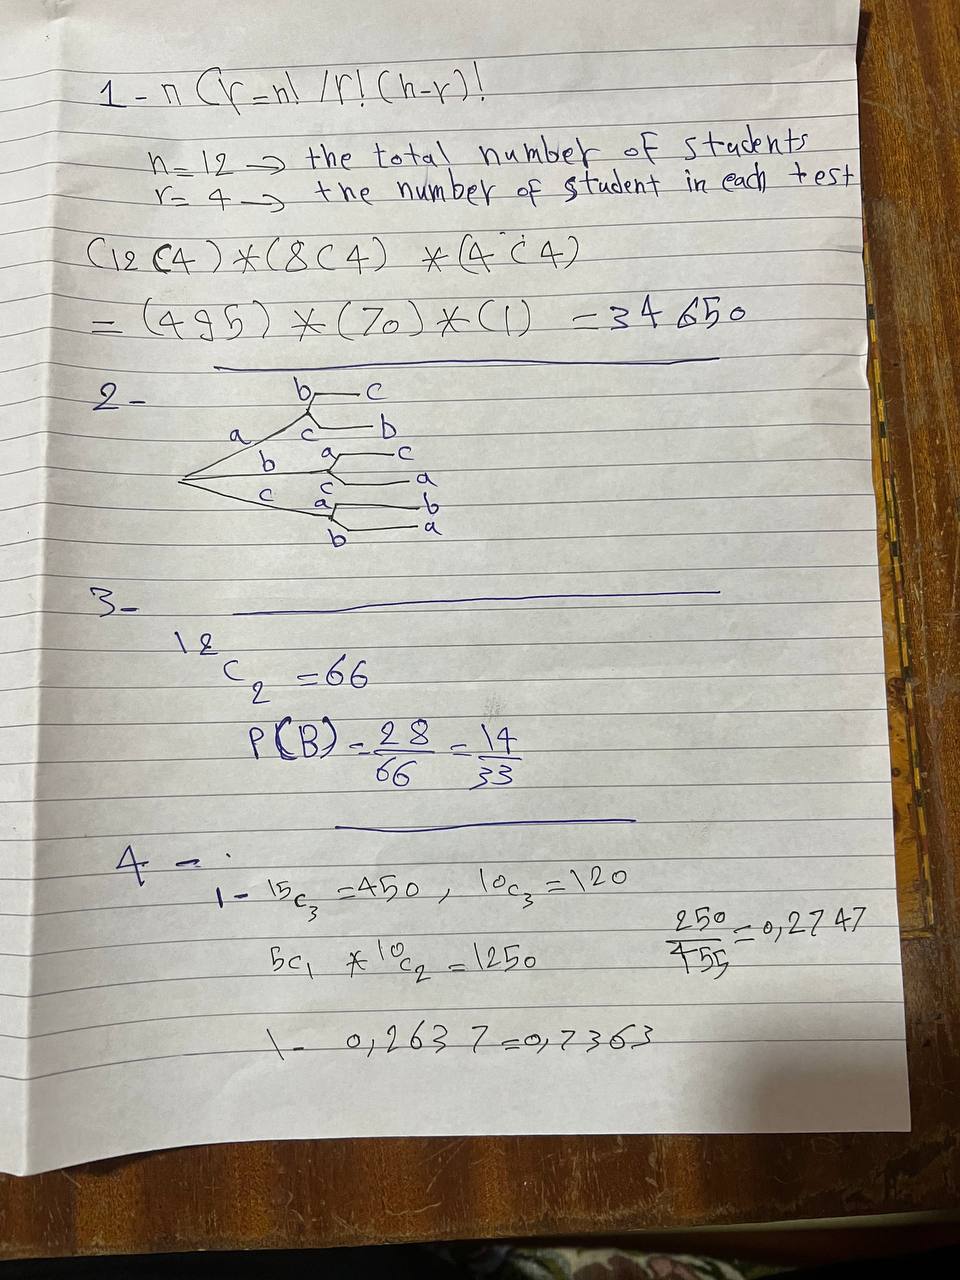 1 - n C r = n! / r! (n-r)!
n = 12 → the total number of students
r = 4 → the number of student in each test
(12 C 4) * (8 C 4) * (4 C 4)
= (495) * (70) * (1) = 34 650
2 -
b c
a c b
b a c
c c a
a b
b a
3-
12
C2 = 66
P(B) = 28/66 = 14/33
4 -
1- 15C3 = 450 , 10C3 = 120
250/455 = 0,2747
5C1 * 10C2 = 1250
1 - 0,2637 = 0,7363